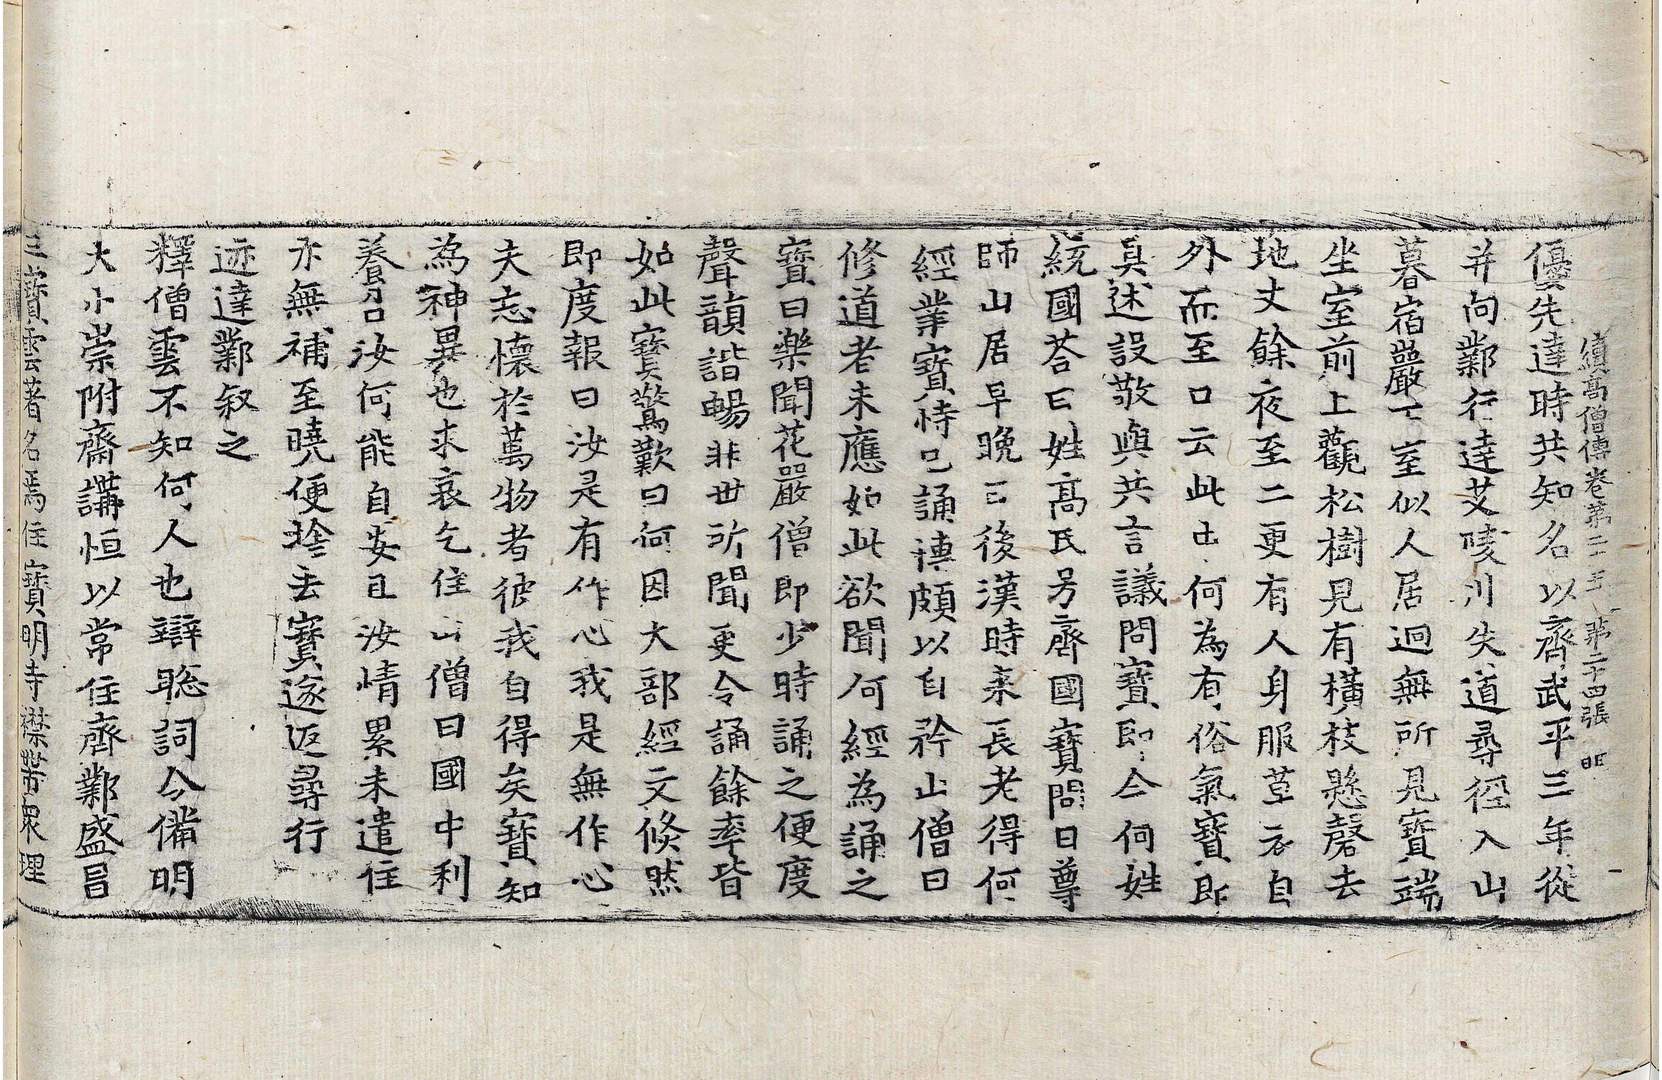 續高僧傳卷第二十五 第二十四張 明
優先達時共知名以齊武平三年從
并向鄴行達艾陵川失道尋徑入山
暮宿巖下室似人居迴無所見寶端
坐室前上觀松樹見有橫枝懸磬去
地丈餘夜至二更有人身服草衣自
外而至口云此中何為有俗氣寶即
具述設敬與共言議問寶即今何姓
統國荅曰姓高氏号齊國寶問曰尊
師山居早晚曰後漢時来長老得何
經業寶恃己誦博頗以自矜山僧曰
修道者未應如此欲聞何經為誦之
寶曰樂聞花嚴僧即少時誦之便度
聲韻諧暢非世所聞更令誦餘率皆
如此寶驚歎曰何因大部經文倏然
即度報曰汝是有作心我是無作心
夫忘懷於萬物者彼我自得矣寶知
為神異也求哀乞住山僧曰國中利
養召汝何能自安且汝情累未遣住
亦無補至曉便捨去寶遂返尋行
迹達鄴叙之
釋僧雲不知何人也辯聰詞令備明
大小崇附齋講恒以常住齊鄴盛昌
三寶雲著名焉住寶明寺襟帶衆理